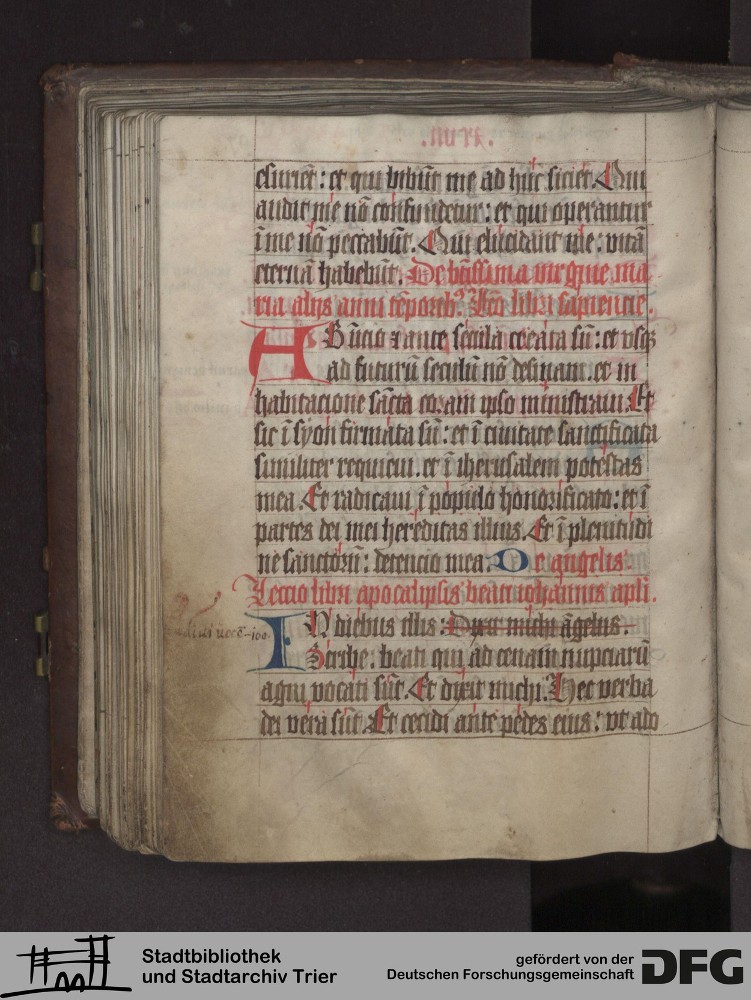 esurient: et qui bibūt me ad huc sicient. Qui
audit me nō confundetur: et qui operantur
ī me nō peccabūt. Qui elucidant me: vitā
eternā habebūt. De btāssima virgine ma
ria alijs anni tēporib9. Lcō libri sapiencie.
AB inicio et ante secula creata sū: et vsq3
ad futurū seculū nō desinam. et in
habitacione sācta coram ipso ministraui. Et
sic ī syon firmata sū: et ī ciuitate sanctificata
similiter requieui. et ī iherusalem potestas
mea. Et radicaui ī populo honorificato: et ī
partes dei mei hereditas illius. Et ī plenitudi
ne sanctorū: detencio mea. De angelis.
Leccio libri apocalipsis beati iohannis apli.
IN diebus illis: Dixit michi āgelus.
Scribe: beati qui ad cenam nupciarū
agni vocati sūt. Et dixit michi. Hec verba
dei vera sūt. Et cecidi ante pedes eius: vt ado
Stadtbibliothek
und Stadtarchiv Trier
gefördert von der
Deutschen Forschungsgemeinschaft
DFG